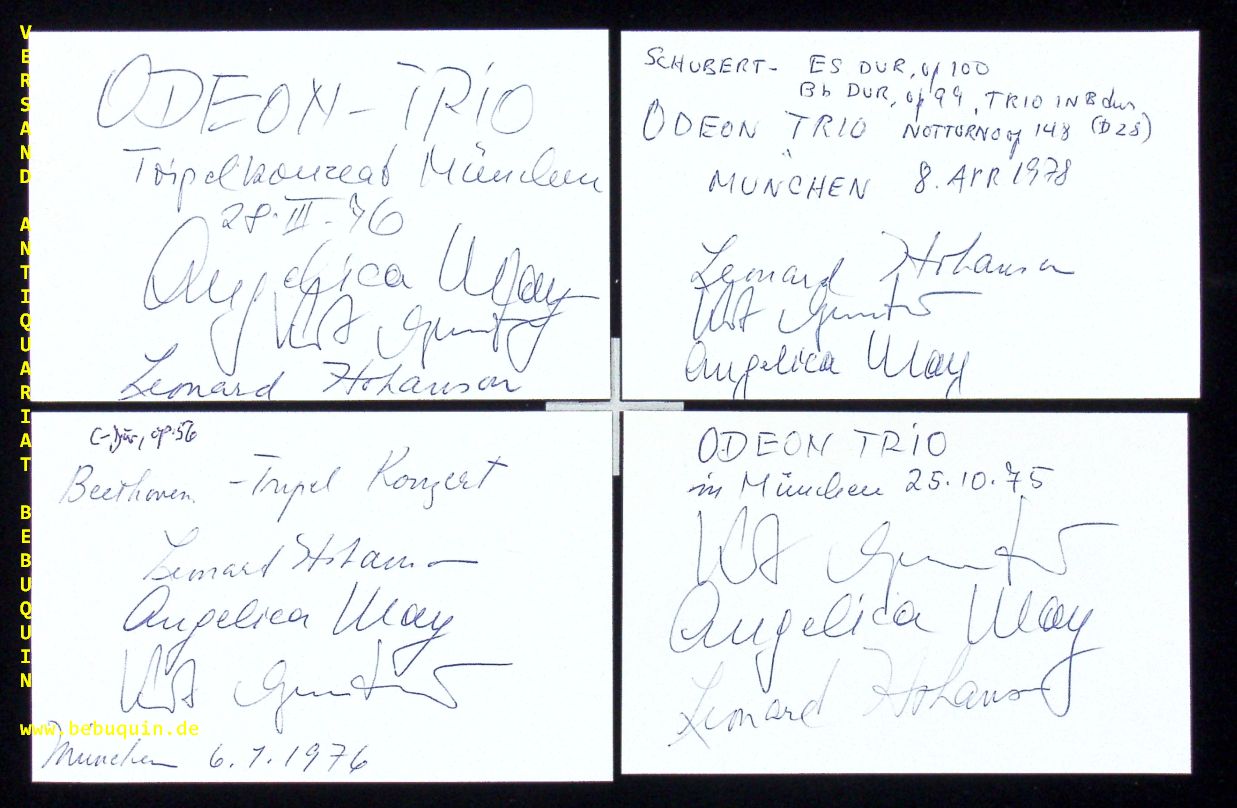 VERSAND ANTIQUARIAT BEBUQUIN
ODEON-TRIO
Tripelkonzert München
28.III.76
Angelica May
Kurt Guntner
Leonard Hokanson
SCHUBERT- ES DUR, op 100
Bb DUR, op 99, TRIO IN B dur,
ODEON TRIO NOTTURNO op 148 (D 28)
MÜNCHEN 8. APR 1978
Leonard Hokanson
Kurt Guntner
Angelica May
C-Dur, op. 56
Beethoven - Tripel Konzert
Leonard Hokanson
Angelica May
Kurt Guntner
München 6.1.1976
ODEON TRIO
in München 25.10.75
Kurt Guntner
Angelica May
Leonard Hokanson
www.bebuquin.de